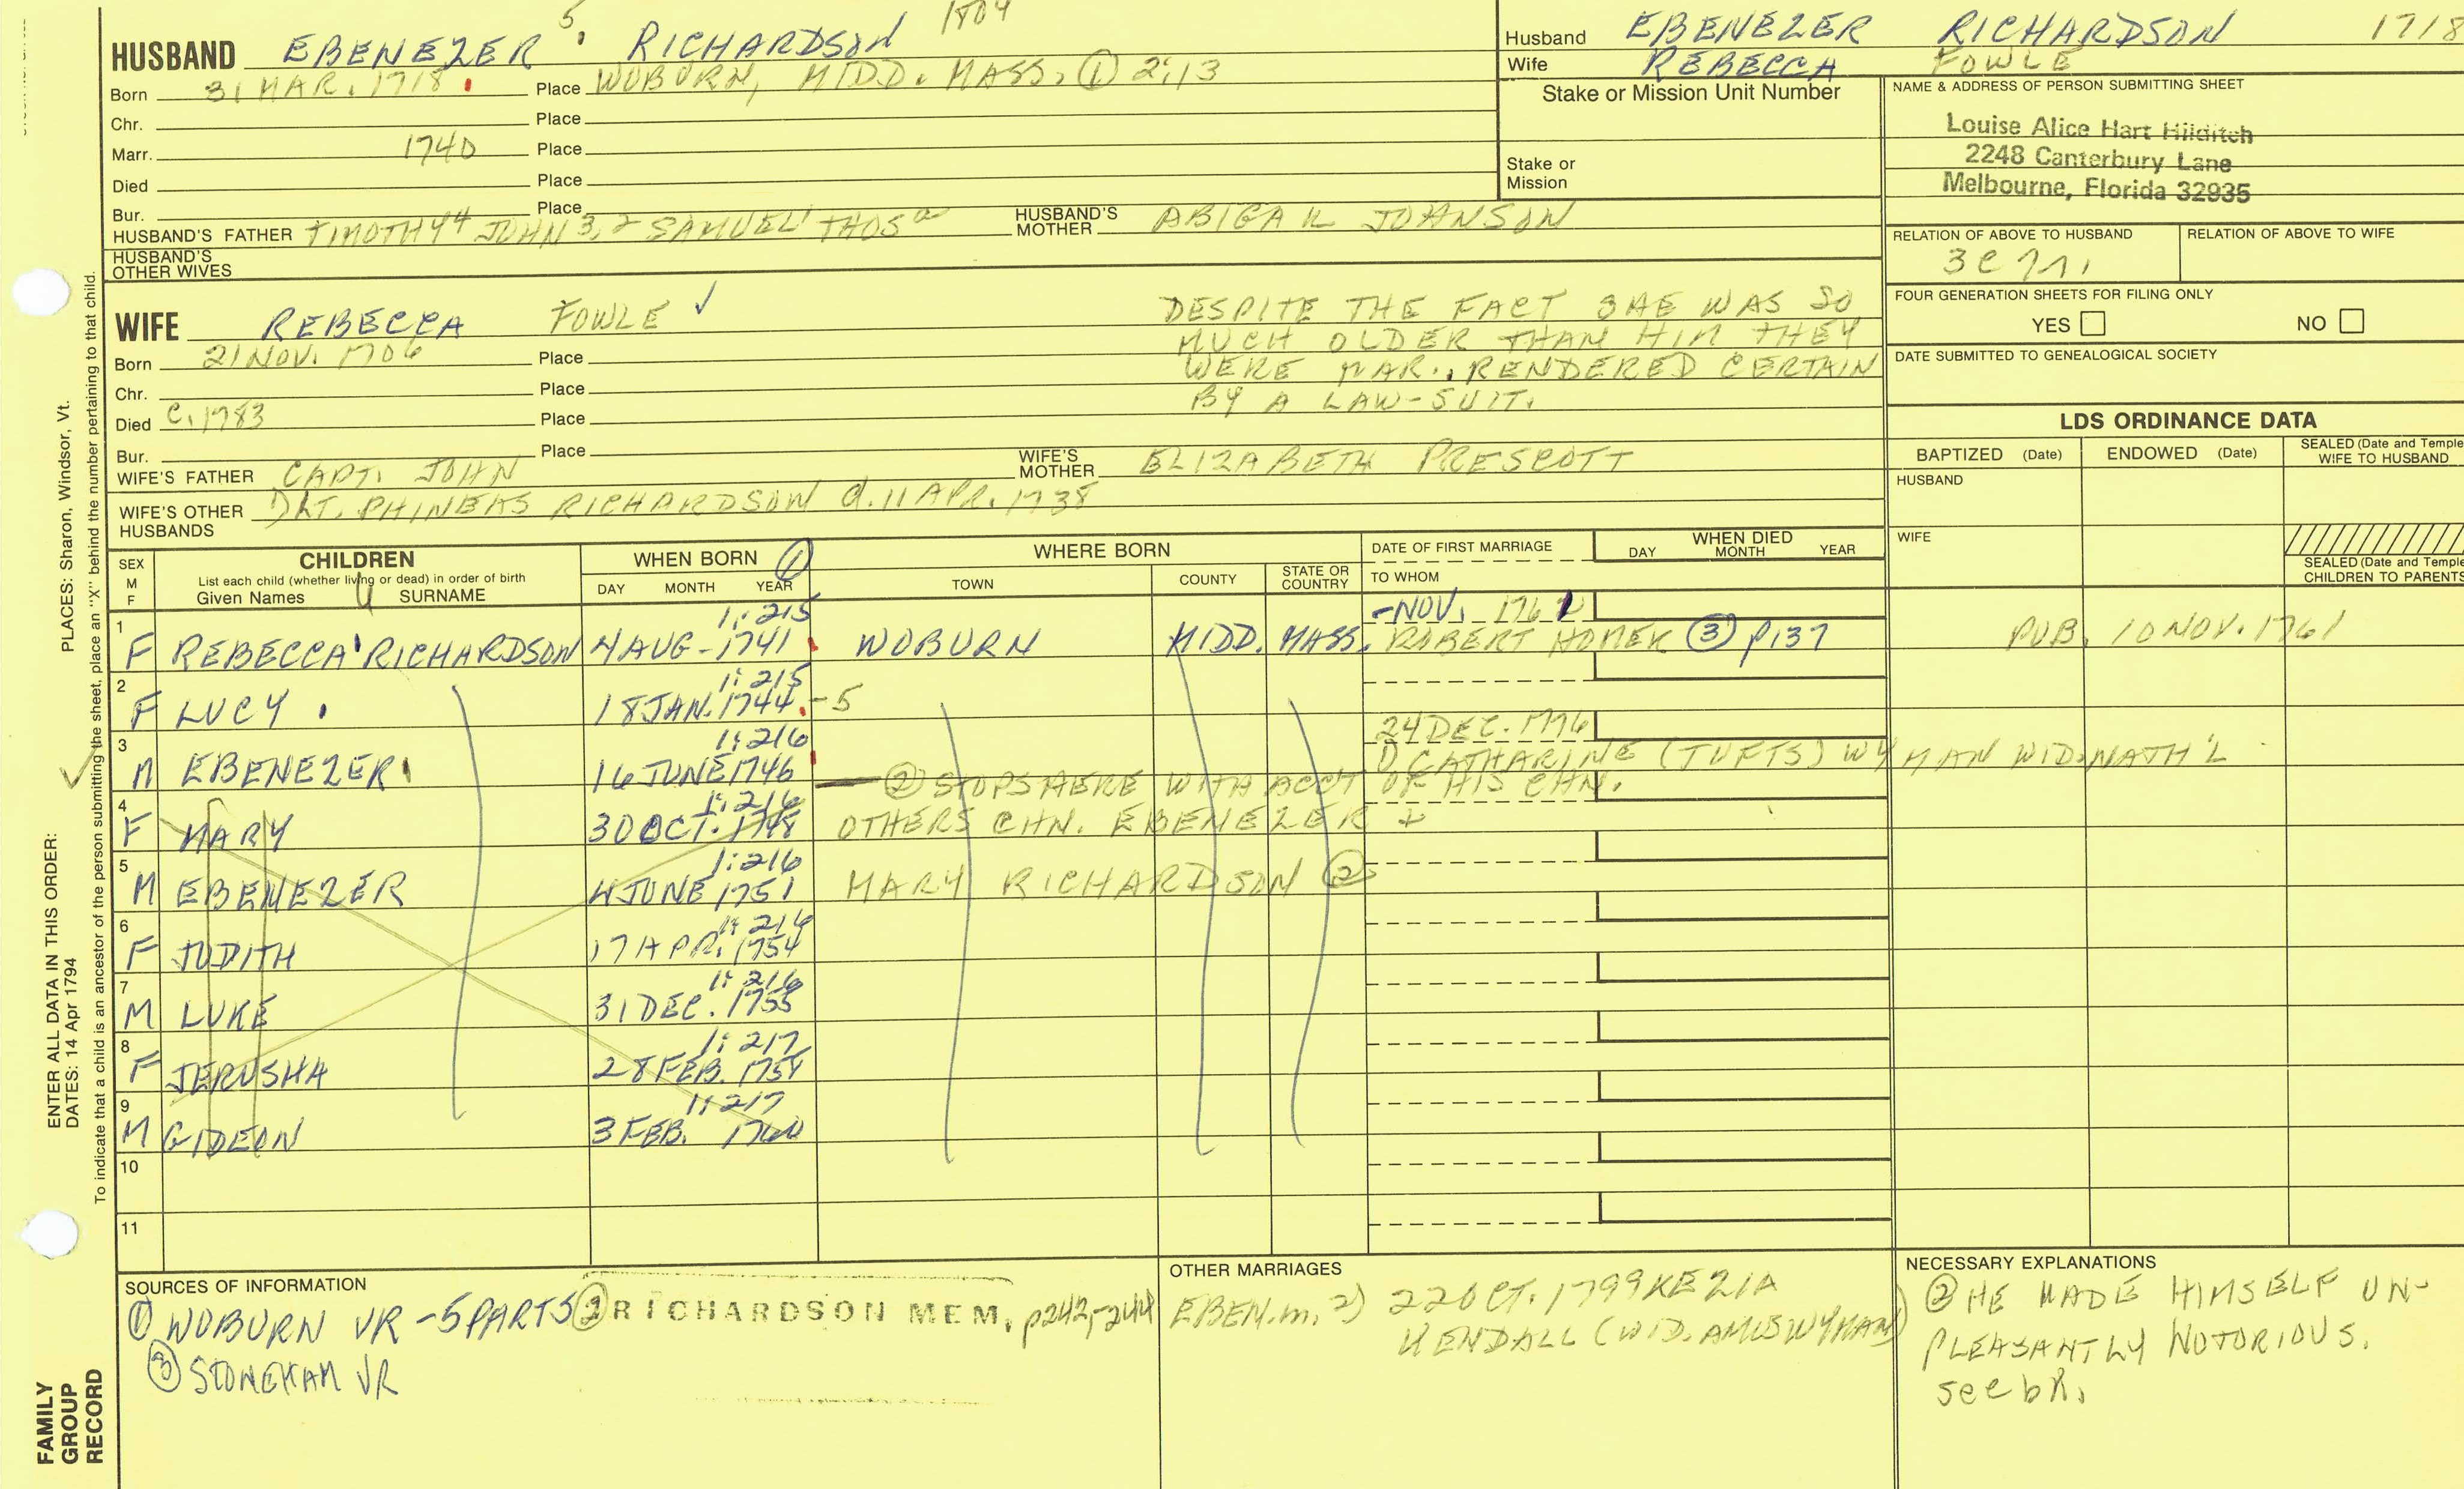 HUSBAND EBENEZER 5 RICHARDSON 1804
Born 31 MAR. 1718. Place WOBURN, MIDD. MASS. ① 2:13
Chr. Place
Marr. 1740 Place
Died Place
Bur. Place
HUSBAND'S FATHER TIMOTHY4 JOHN 3,2 SAMUEL1 THOS HUSBAND'S MOTHER ABIGAIL JOHNSON
HUSBAND'S OTHER WIVES
Husband EBENEZER RICHARDSON 1718
Wife REBECCA FOWLE
Stake or Mission Unit Number
Stake or
Mission
NAME & ADDRESS OF PERSON SUBMITTING SHEET
Louise Alice Hart Hilditch
2248 Canterbury Lane
Melbourne, Florida 32935
RELATION OF ABOVE TO HUSBAND RELATION OF ABOVE TO WIFE
FOUR GENERATION SHEETS FOR FILING ONLY
YES NO
DATE SUBMITTED TO GENEALOGICAL SOCIETY
WIFE REBECCA FOWLE ✓
Born 21 NOV. 1706 Place
Chr. Place
Died C. 1783 Place
Bur. Place
DESPITE THE FACT SHE WAS SO
MUCH OLDER THAN HIM THEY
WERE MAR., RENDERED CERTAIN
BY A LAW-SUIT.
WIFE'S FATHER CAPT. JOHN WIFE'S MOTHER ELIZABETH PRESCOTT
WIFE'S OTHER HUSBANDS 1) LT. PHINEAS RICHARDSON d. 11 APR. 1738
LDS ORDINANCE DATA
BAPTIZED (Date) ENDOWED (Date) SEALED (Date and Temple) WIFE TO HUSBAND
HUSBAND
WIFE
SEALED (Date and Temple) CHILDREN TO PARENTS
SEX M F
CHILDREN
List each child (whether living or dead) in order of birth
Given Names SURNAME
WHEN BORN ①
DAY MONTH YEAR
WHERE BORN
TOWN COUNTY STATE OR COUNTRY
DATE OF FIRST MARRIAGE
TO WHOM
WHEN DIED
DAY MONTH YEAR
1:215 -NOV. 1761
1 F REBECCA RICHARDSON 4 AUG - 1741 WOBURN MIDD. MASS. ROBERT HOMER ③ p137 PUB. 10 NOV. 1761
1:215
2 F LUCY 18 JAN. 1744-5
1:216 24 DEC. 1776
3 M EBENEZER 16 JUNE 1746 1) CATHARINE (TUFTS) WYMAN WID. NATH'L
② STOPS HERE WITH ACCT OF HIS CHN.
1:216
4 F MARY 30 OCT. 1748 OTHERS CHN. EBENEZER +
1:216
5 M EBENEZER 4 JUNE 1751 MARY RICHARDSON ②
1:216
6 F JUDITH 17 APR. 1754
1:216
7 M LUKE 31 DEC. 1755
1:217
8 F JERUSHA 28 FEB. 1758
1:217
9 M GIDEON 3 FEB. 1760
10
11
SOURCES OF INFORMATION
① WOBURN VR - 5 PARTS ② RICHARDSON MEM. p243-244
③ STONEHAM VR
OTHER MARRIAGES
EBEN. m. 2) 22 OCT. 1799 KEZIA
KENDALL (WID. AMOS WYMAN)
NECESSARY EXPLANATIONS
② HE MADE HIMSELF UN-
PLEASANTLY NOTORIOUS.
see bk.
ENTER ALL DATA IN THIS ORDER:
DATES: 14 Apr 1794 PLACES: Sharon, Windsor, Vt.
To indicate that a child is an ancestor of the person submitting the sheet, place an "X" behind the number pertaining to that child.
FAMILY
GROUP
RECORD